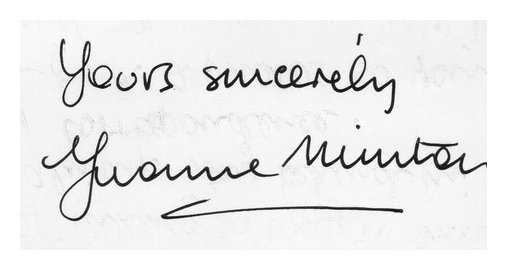 Yours sincerely
Yvonne Minton